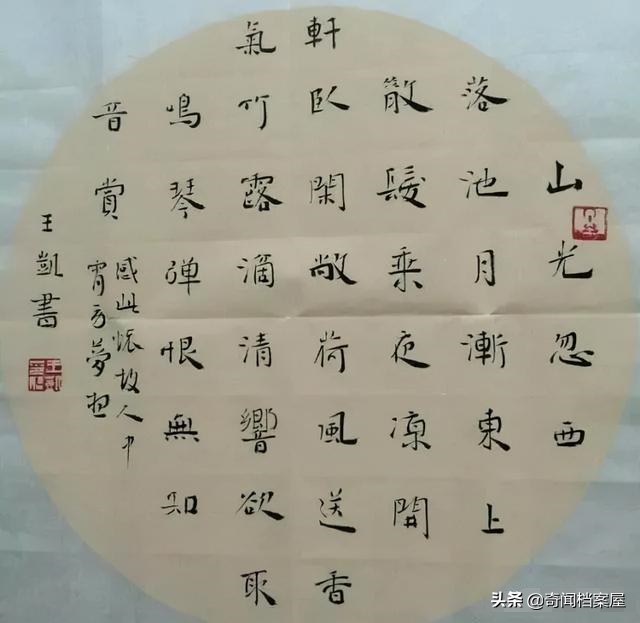 山光忽西
落池月漸東上
散髮乘夜凉開
軒臥閑敞荷風送香
氣竹露滴清響欲取
鳴琴弹恨無知
音賞
感此懷故人中
宵劳夢想
王凱書
头条 @奇闻档案屋